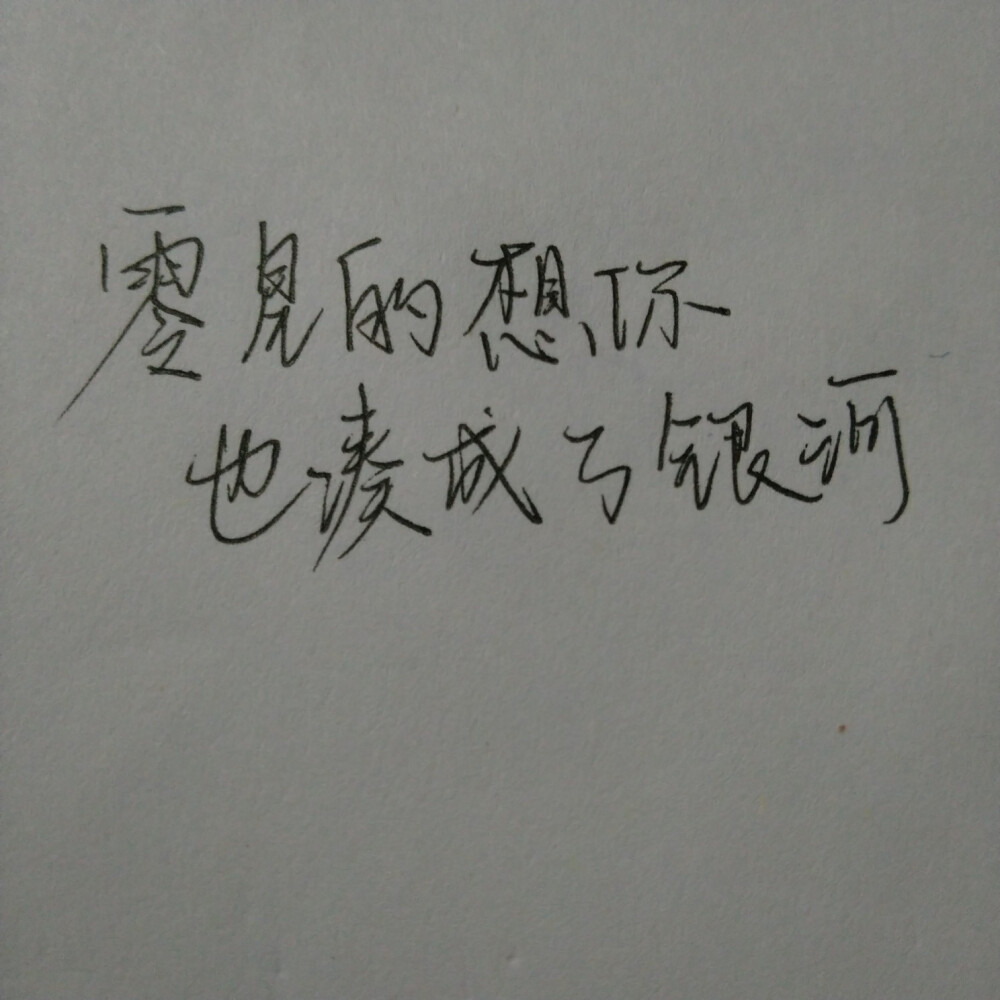 零星的想你
也凑成了银河